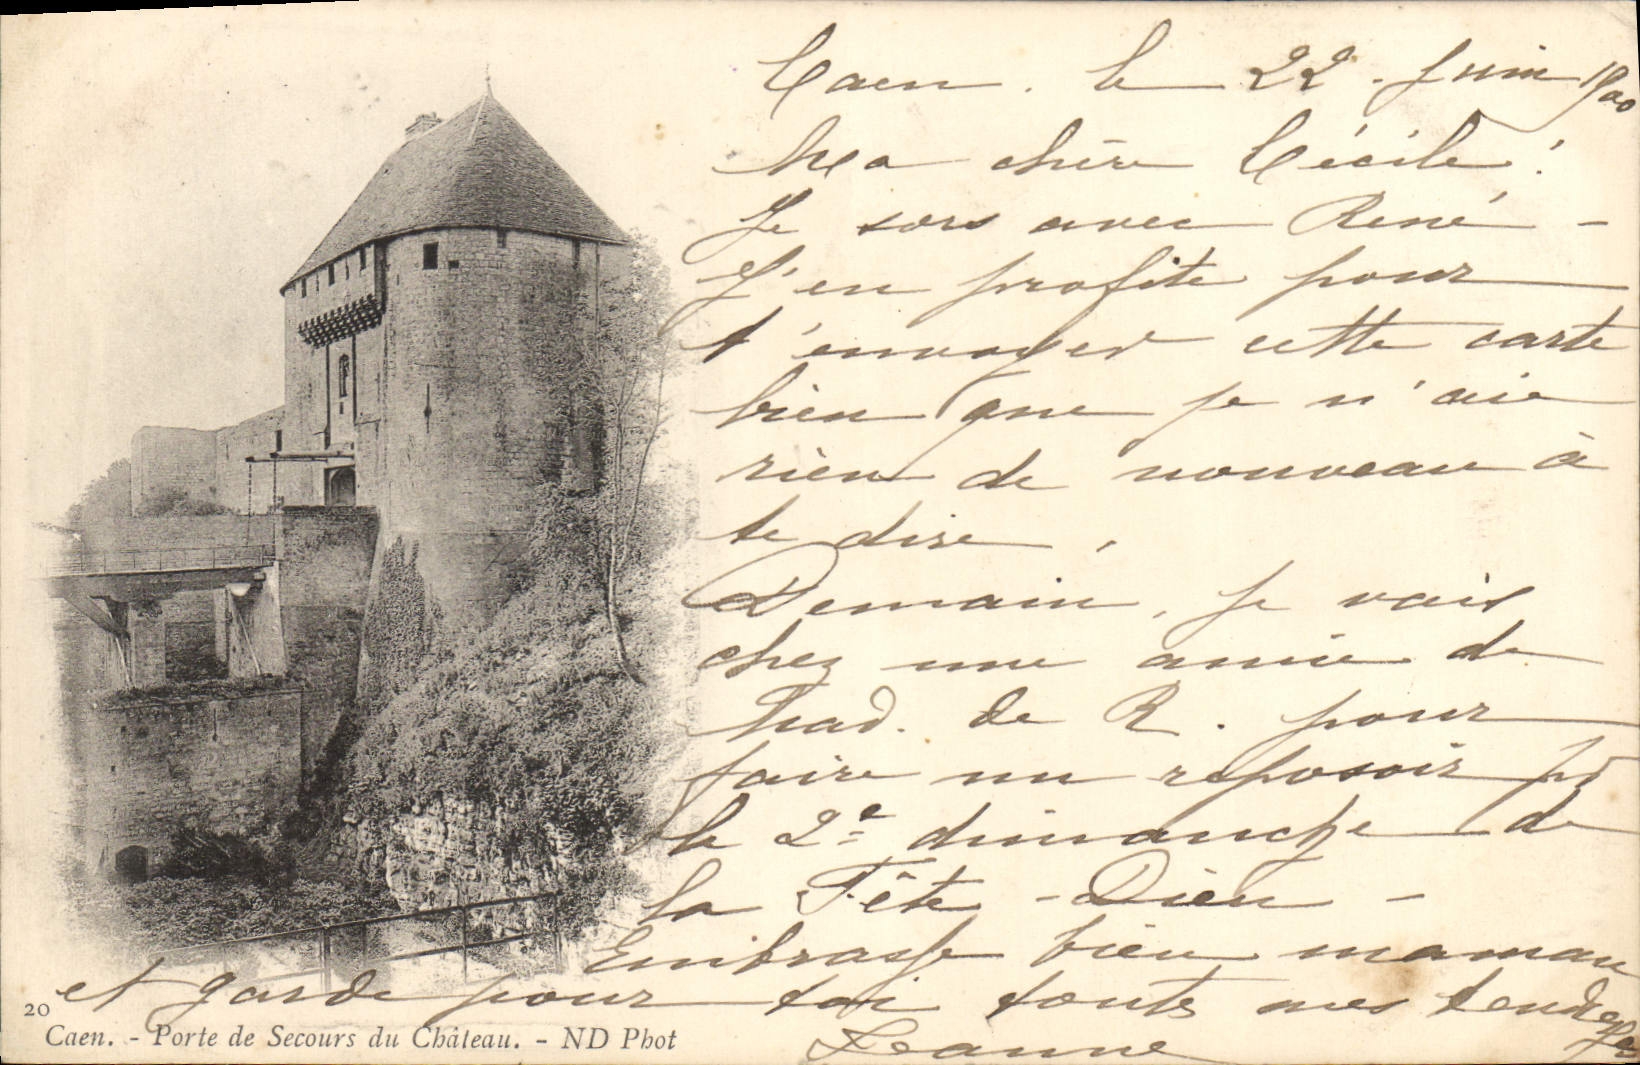 Caen. le 22. Juin 1900
Ma chère Cécile!
Je sors avec René -
J'en profite pour
t'envoyer cette carte
bien que je n'aie
rien de nouveau à
te dire.
Demain, je vais
chez une amie de
Mad. de R. pour
faire un reposoir pr
le 2e dimanche de
la Fête-Dieu -
Embrasse bien maman
et garde pour toi toutes mes tendresses
Jeanne
20
Caen. - Porte de Secours du Château. - ND Phot